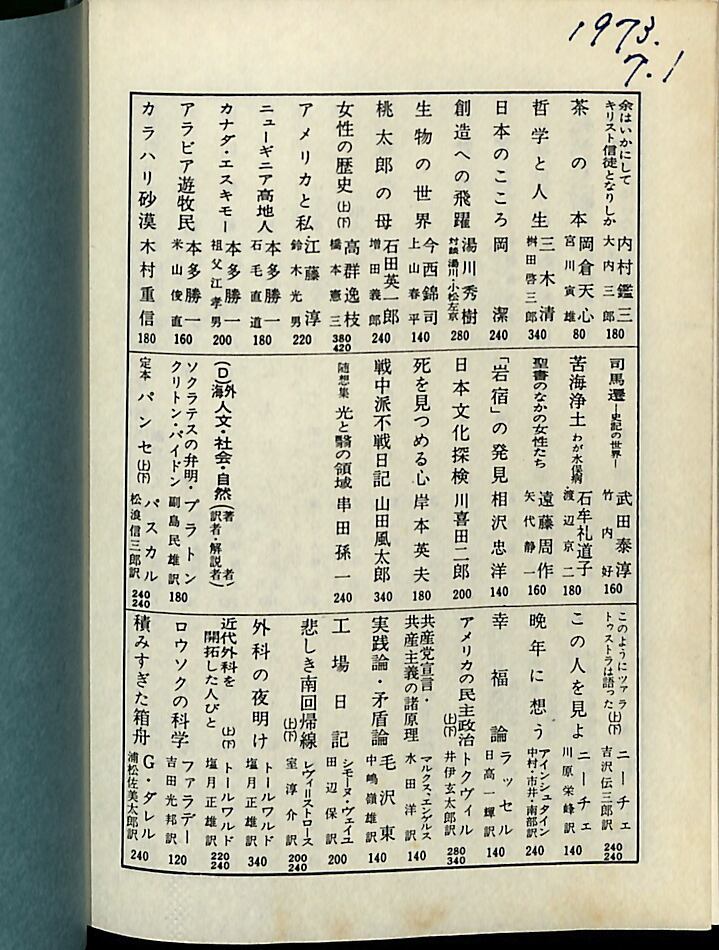 1973.
7.1
余はいかにして
キリスト信徒となりしか
内村鑑三
大内三郎
180
茶の本
岡倉天心
宮川寅雄
80
哲学と人生
三木清
桝田啓三郎
340
日本のこころ
岡潔
240
創造への飛躍
湯川秀樹
対談 湯川・小松左京
280
生物の世界
今西錦司
上山春平
140
桃太郎の母
石田英一郎
増田義郎
240
女性の歴史(上)(下)
高群逸枝
橋本憲三
380
420
アメリカと私
江藤淳
鈴木光男
220
ニューギニア高地人
本多勝一
石毛直道
180
カナダ・エスキモー
本多勝一
祖父江孝男
200
アラビア遊牧民
本多勝一
米山俊直
160
カラハリ砂漠
木村重信
180
司馬遷―史記の世界―
武田泰淳
竹内好
160
苦海浄土 わが水俣病
石牟礼道子
渡辺京二
180
聖書のなかの女性たち
遠藤周作
矢代静一
160
「岩宿」の発見
相沢忠洋
140
日本文化探検
川喜田二郎
200
死を見つめる心
岸本英夫
180
戦中派不戦日記
山田風太郎
340
随想集 光と翳の領域
串田孫一
240
(D)海外 人文・社会・自然(著者)(訳者・解説者)
ソクラテスの弁明・
クリトン・パイドン
プラトン
副島民雄訳
180
定本 パンセ(上)(下)
パスカル
松浪信三郎訳
240
240
このようにツァラ
トゥストラは語った(上)(下)
ニーチェ
吉沢伝三郎訳
240
240
この人を見よ
ニーチェ
川原栄峰訳
140
晩年に想う
アインシュタイン
中村・市井・南部訳
240
幸福論
ラッセル
日高一輝訳
140
アメリカの民主政治(上)(下)
トクヴィル
井伊玄太郎訳
280
340
共産党宣言・
共産主義の諸原理
マルクス、エンゲルス
水田洋訳
140
実践論・矛盾論
毛沢東
中嶋嶺雄訳
140
工場日記
シモーヌ・ヴェイユ
田辺保訳
200
悲しき南回帰線(上)(下)
レヴィ=ストロース
室淳介訳
200
240
外科の夜明け
トールワルド
塩月正雄訳
340
近代外科を
開拓した人びと(上)(下)
トールワルド
塩月正雄訳
220
240
ロウソクの科学
ファラデー
吉田光邦訳
120
積みすぎた箱舟
G・ダレル
浦松佐美太郎訳
240